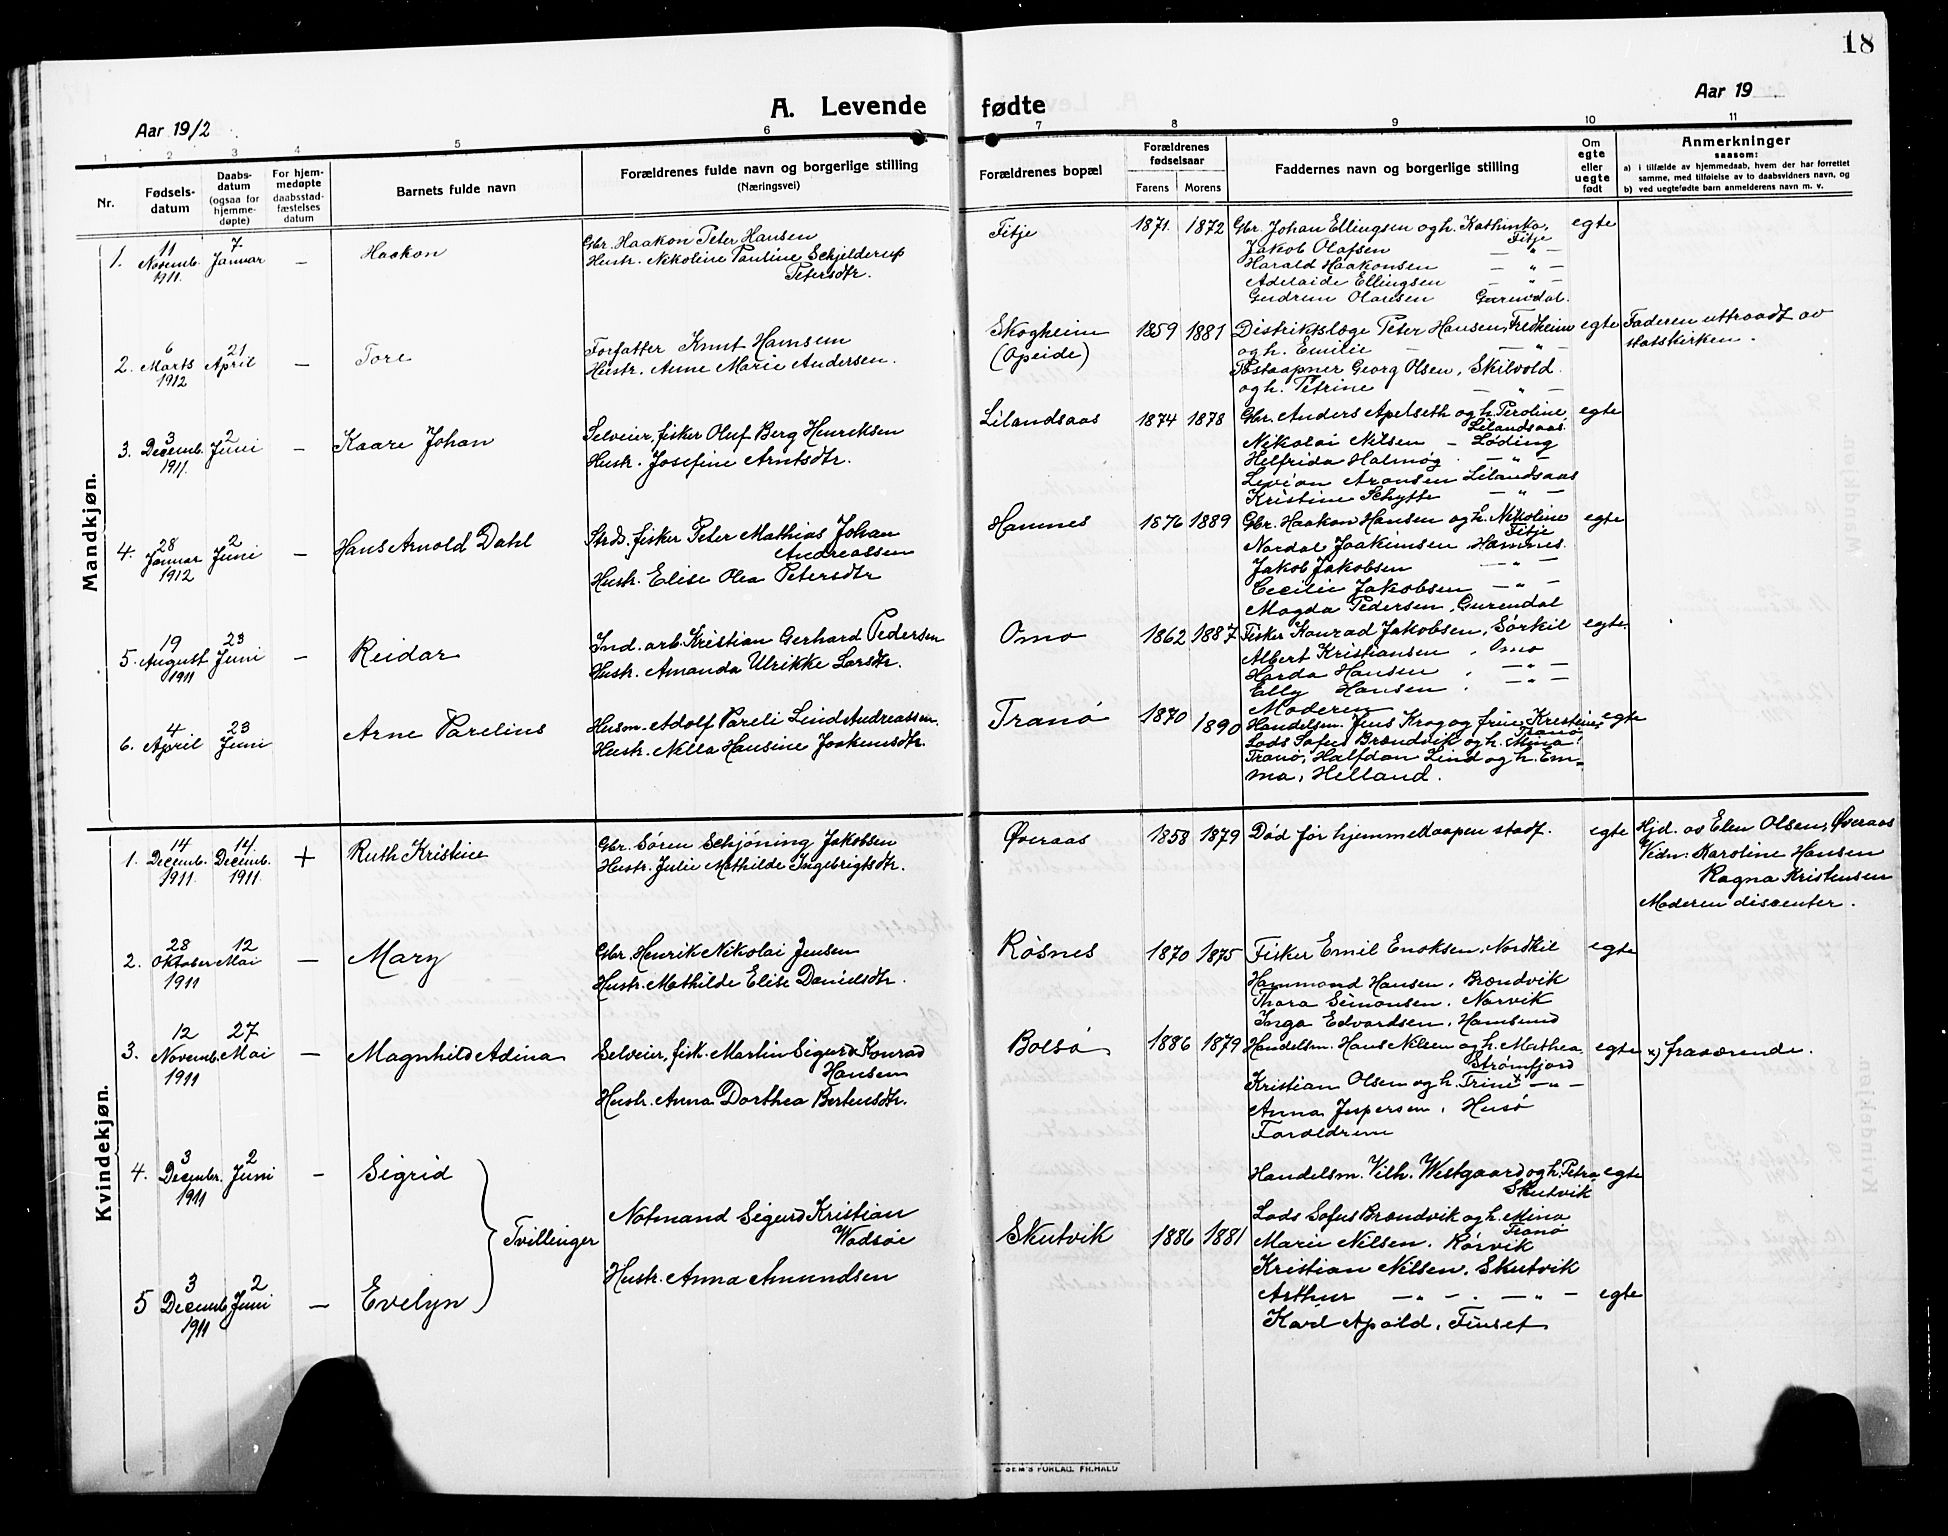 18
A. Levende fødte
Aar 1912
Aar 19
1 2 3 4 5 6 7 8 9 10 11
Nr.
Fødsels-
datum
Daabs-
datum
(ogsaa for
hjemme-
døpte)
For hjem-
medøpte
daabsstad-
fæstelses
datum
Barnets fulde navn
Forældrenes fulde navn og borgerlige stilling
(Næringsvei)
Forældrenes bopæl
Forældrenes
fødselsaar
Farens Morens
Faddernes navn og borgerlige stilling
Om
egte
eller
uegte
født
Anmerkninger
saasom:
a) i tilfælde av hjemmedaab, hvem der har forrettet
samme, med tilføielse av to daabsvidners navn, og
b) ved uegtefødte barn anmelderens navn m. v.
Mandkjøn.
1. 11 Novemb. 1911. 7 Januar – Haakon
Gbr. Haakon Peter Hansen
Hustr. Nikoline Pauline Schjelderup
Petersdtr.
Fitje 1871. 1872
Gbr. Johan Ellingsen og h. Kathinka,
Fitje
Jakob Olafsen — " —
Harald Haakonsen — " —
Adelaide Ellingsen — " —
Gudrun Olavsen Gurendal.
egte
2. 6 Marts 1912 21 April – Tore
Forfatter Knut Hamsun
Hustr. Anne Marie Andersen.
Skogheim
(Opeide)
1859 1881
Distriktslæge Peter Hansen, Fredheim
og h. Emilie — " —
Postaapner Georg Olsen, Skilvold
og h. Petrine — " —
egte
Faderen uttraadt av
statskirken.
3. 3 Decemb. 1911. 2 Juni – Kaare Johan
Selveier, fisker Oluf Berg Henriksen
Hustr. Josefine Arntsdtr.
Lilandsaas 1874 1878
Gbr. Anders Apelseth og h. Peroline,
Lilandsaas
Nikolai Nilsen – Løding
Helfrida Halmøy — " —
Levion Aronsen Lilandsaas
Kristine Schytte — " —
egte
4. 28 Januar 1912 2 Juni – Hans Arnold Dahl
Strds. fisker Peter Mathias Johan
Andreassen
Hustr. Elise Olea Petersdtr
Hamnes 1876 1889
Gbr. Haakon Hansen og h. Nikoline
Fitje
Nordal Joakimsen Hamnes.
Jakob Jakobsen — " —
Cecilie Jakobsen — " —
Magda Pedersen, Gurendal
egte
5. 19 August 1911 23 Juni – Reidar
Ind. arb. Kristian Gerhard Pedersen
Hustr. Amanda Ulrikke Larsdtr.
Omo 1862 1887
Fisker Konrad Jakobsen, Sørkil
Albert Kristiansen, Omo
Harda Hansen, — " —
Elly Hansen. — " —
Moderen
egte.
6. 4 April 23 Juni Arne Parelius
Husm. Adolf Pareli Lind Andreassen.
Hustr. Nilla Hansine Joakimsdtr.
Tranø 1870 1890
Handelsm. Jens Krog og frue Kristine,
Tranø
Lods Sofus Brændvik og h. Mina
Tranø, Halfdan Lind og h. Em-
ma, Helland.
egte
Kvindekjøn.
1. 14 Decemb. 1911. 14. Decemb. 1911. + Ruth Kristine
Gbr. Søren Schjøning Jakobsen
Hustr. Julie Mathilde Ingebrigtsdtr.
Øveraas 1858 1879
Død før hjemmedaapen stadf.
egte
Hjd. av Elen Olsen, Øveraas
Vidn: Karoline Hansen
Ragna Kristensen
Moderen dissenter.
2. 28 Oktober 1911 12 Mai – Mary
Gbr. Henrik Nikolai Jensen
Hustr. Mathilde Elise Danielsdtr.
Røsnes 1870 1875
Fisker Emil Enoksen, Nordkil
Hammond Hansen, Brændvik
Thora Simonsen, Narvik
Inga Edvardsen, Hamsund
egte
3. 12 Novemb. 1911 27 Mai – Magnhild Adina
Selveier, fisk. Martin Sigurd Konrad
Hansen
Hustr. Anna Dorthea Bertensdtr.
Bolsø 1886 1879
Handelsm. Hans Nilsen og h. Mathea,
Strømfjord
Kristian Olsen og h. Trine x — " —
Anna Jespersen, Husø
Forældrene
egte
x) fraværende.
4. 3 Decembr. 1911 2 Juni – Sigrid
Tvillinger
Notmand Sigurd Kristian
Wadsøe
Hustr. Anna Amundsen
Skutvik 1886 1881
Handelsm. Vilh. Westgaard og h. Petra
Skutvik
Lods Sofus Brændvik og h. Mina
Tranø
Marie Nilsen, Rørvik
Kristian Nilsen, Skutvik
Arthur — " — . — " —
Karl Apold, Finset
egte
5 3 Decemb. 1911 2 Juni – Evelyn
egte
E. SEM'S FORLAG. FR.HALD